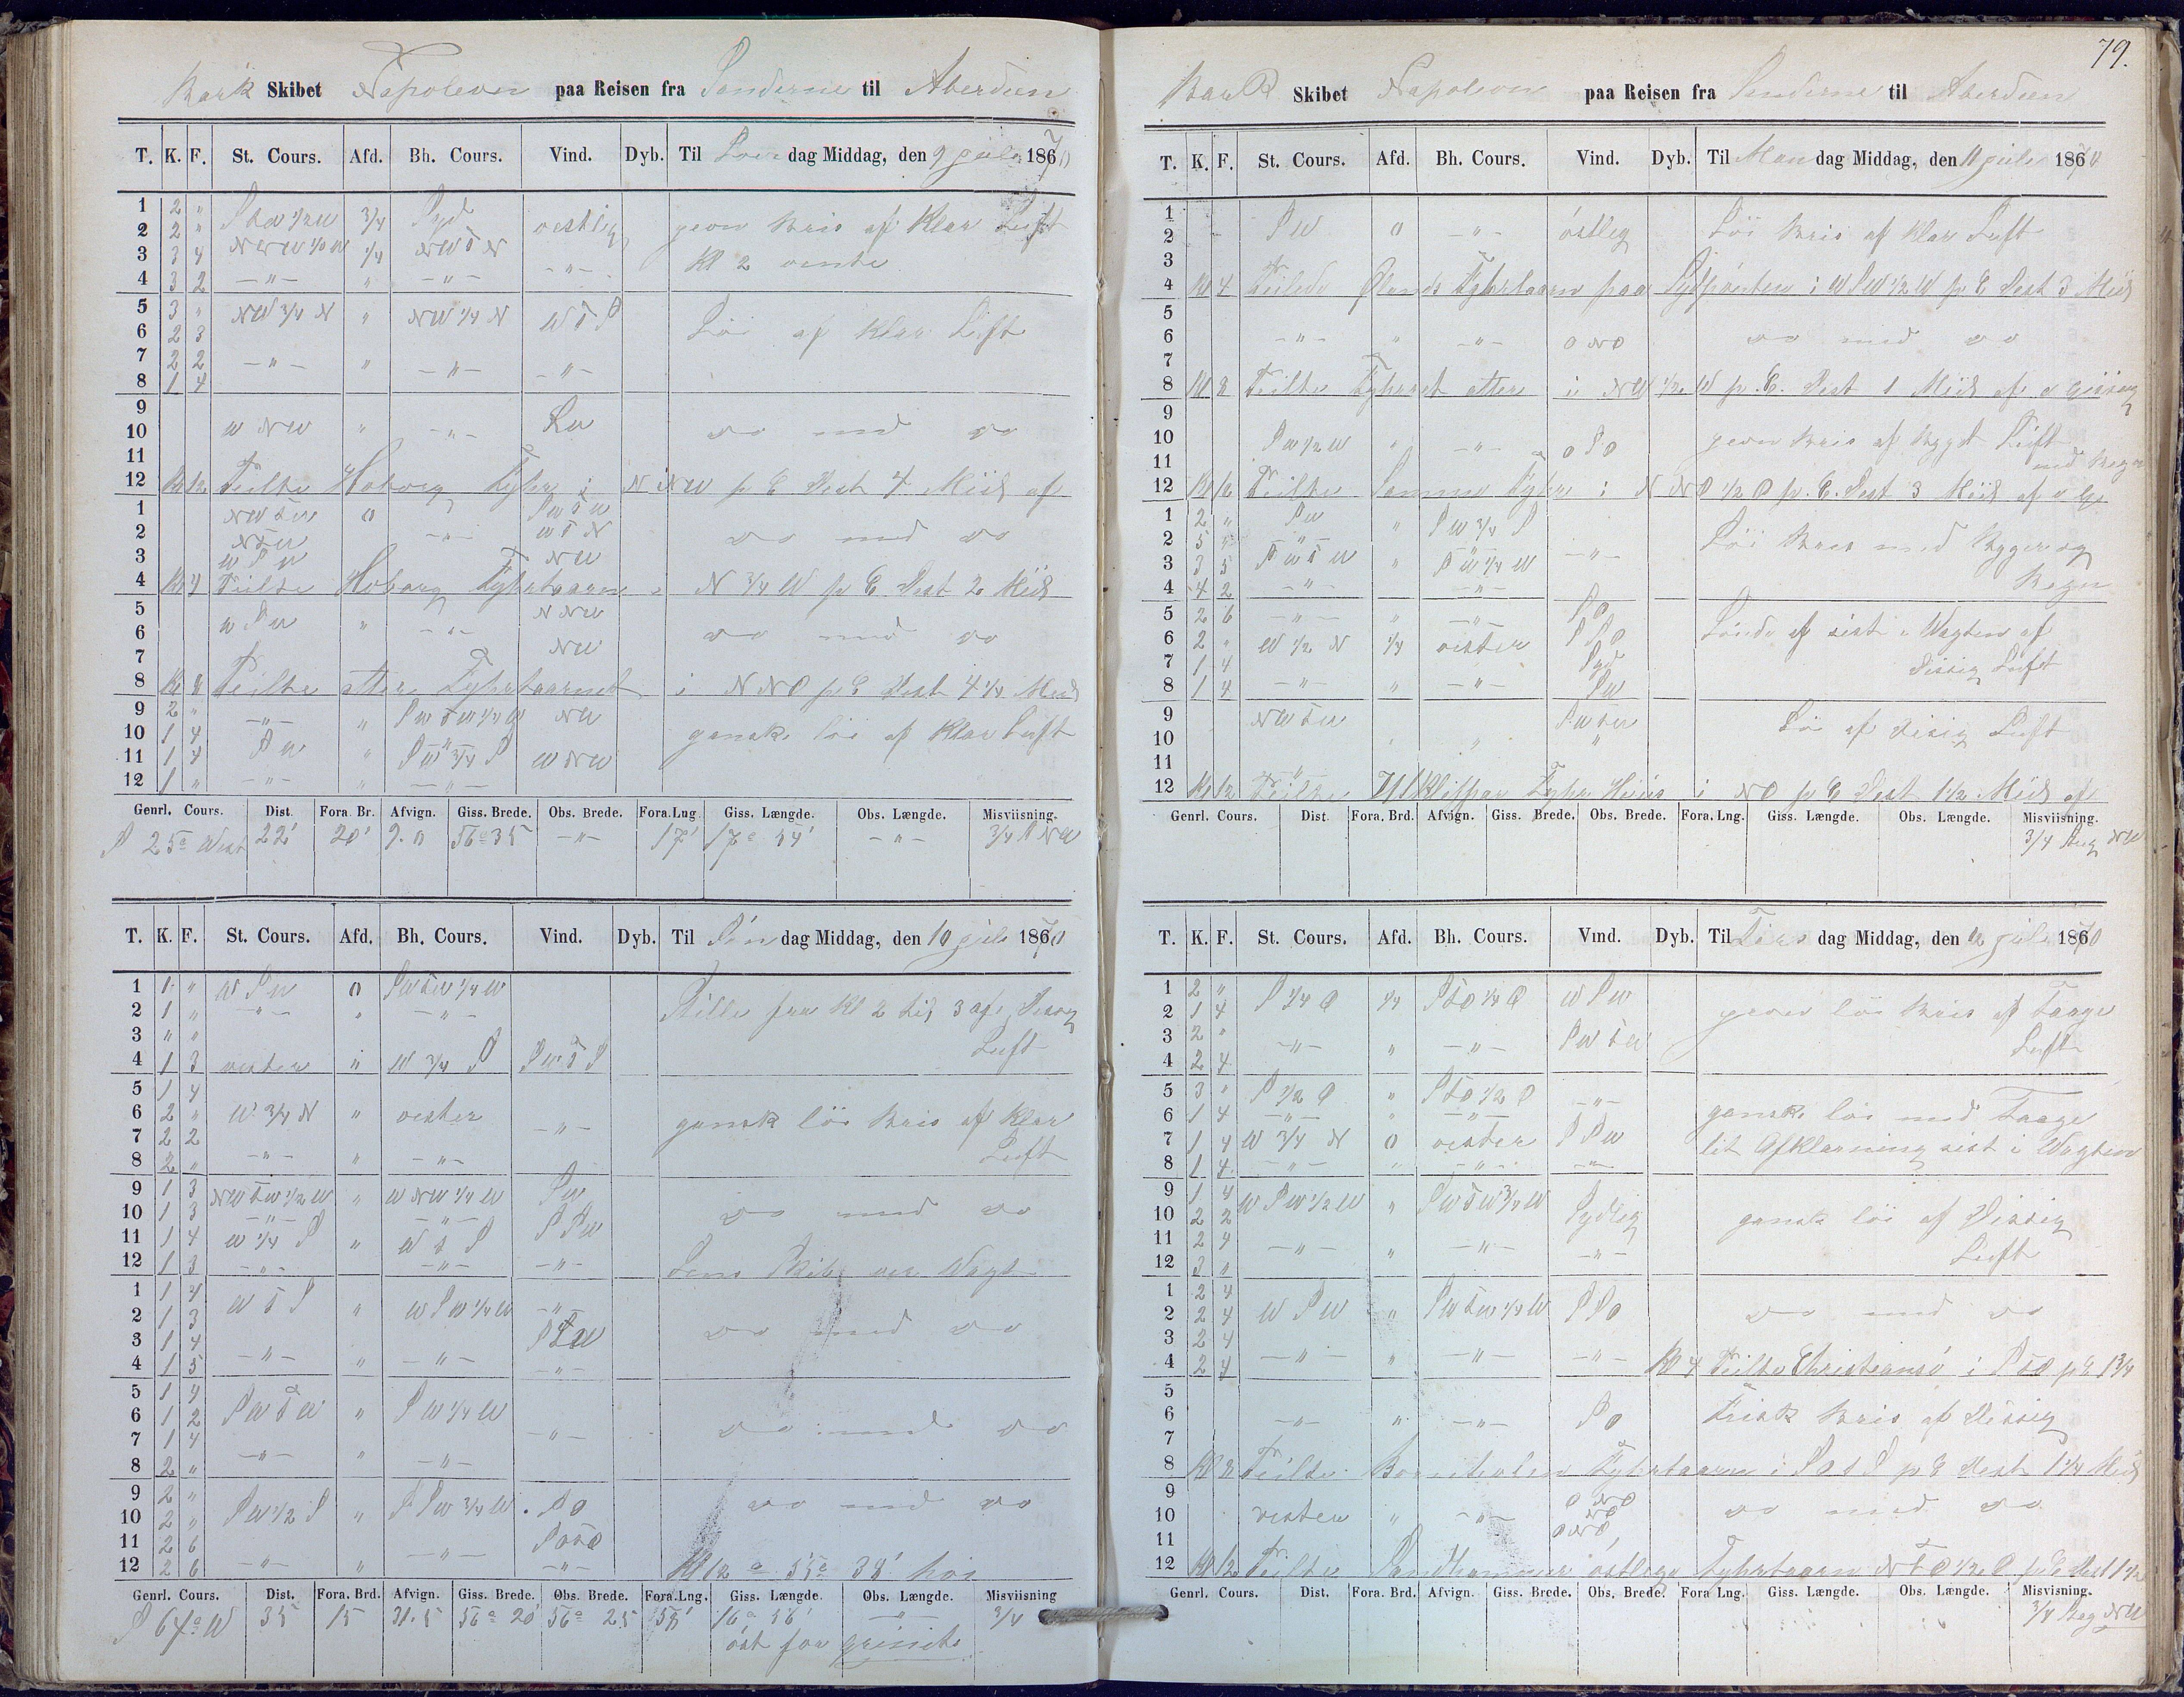 Bark Skibet Napoleon paa Reisen fra Sanderne til Aberdeen
T. K. F. St. Cours. Afd. Bh. Cours. Vind. Dyb. Til Löer dag Middag, den 9 juli 1870
1 2 "
2 2 " 3/4 Syd vestlig jevn Bris af Klar Luft
3 3 4 NWW 1/2 W 1/4 NWTN Kl 2 vente
4 3 2 —"— " —"— —"—
5 3 " NW 3/4 N " NW 1/4 N WTS
6 2 3 Löi af Klar Luft
7 2 2 —"— " —"— —"—
8 1 4
9 SW
10 W NW " —"— do med do
11
12 Kl 12 Peilte Hoborg Fyhr i NTNW pr C Dest 4 Miil af
1 NWTW 0 SWTW
2 NTW —"— WTN do med do
3 W S W NW
4 Kl 4 Peilte Hoborg Fyhrtaarn i N 3/4 W pr C Dest 2 Miil
5 N NW
6 W SW " —"— do med do
7 NW
8 Kl 8 Peilte atter Fyhrtaarnet i NNO pr C Dest 4 1/2 Miil
9 2 " —"— " SWTW 1/4 W NW
10 1 4 ganske löi af Klar Luft
11 1 4 SW " SW 3/4 S W NW
12 1 " —"— " —"—
Genrl. Cours. Dist. Fora. Br. Afvign. Giss. Brede. Obs. Brede. Fora. Lng. Giss. Længde. Obs. Længde. Misviisning.
S 25° West 22' 20' 9.0 56° 35 —"— 17' 17° 54' —"— 3/4 NW
T. K. F. St. Cours. Afd. Bh. Cours. Vind. Dyb. Til Sön dag Middag, den 10 juli 1870
1 1 " W SW 0 SWTW 1/4 W
2 1 " —"— " —"— Stille fra Kl 2 til 3 af Dissig
3 " " Luft
4 1 3 vester " W 3/4 S SWTS
5 1 4
6 2 " W 3/4 N " vester —"— gansk löi Bris af Klar
7 2 2
8 2 " —"— " —"— Luft
9 1 3 NWTW 1/2 W " W NW 1/4 W SW
10 1 3 —"— —"— do med do
11 1 4 W 1/4 S " W T S SSW
12 1 3 —"— —"— —"— Lens Skib ver Vagt
1 1 4
2 1 3 W T S " W SW 1/4 W —"—
3 1 4 STW do med do
4 1 5 —"— " —"— —"—
5 1 4
6 1 2 SWTW " SW 1/4 W
7 1 4 —"— do med do
8 2 " —"— " —"—
9 2 "
10 2 " SW 1/2 S " SSW 3/4 W SO do med do
11 2 6 SOTO
12 2 6 —"— " —"— —"— Kl 12 a 55° 38' höi
Genrl. Cours. Dist. Fora. Brd. Afvign. Giss. Brede. Obs. Brede. Fora. Lng. Giss. Længde. Obs. Længde. Misviisning
S 64° W 35 15 31.5 56° 20 56° 25 58' 16° 56' —"— 3/4
öst for grinits
79.
Bark Skibet Napoleon paa Reisen fra Sanderne til Aberdeen
T. K. F. St. Cours. Afd. Bh. Cours. Vind. Dyb. Til Man dag Middag, den 11 juli 1870
1
2 SW 0 —"— östleg Löi Bris af Klar Luft
3
4 Kl 4 Peilede Ølands Fyhrtaarn paa Sydpynten i WSW 1/2 W pr C Dest 3 Miil
5
6 —"— " —"— O NO do med do
7
8 Kl 8 Peilte Fyhret atter i NW 1/2 W pr. C. Dest 1 Miil af
9
10 SW 1/2 W " —"— OSO jevn Bris af Bygst Luft
11 med Regn
12 Kl 12 Peilte Samme Fyhr i N NO 1/2 O pr. C. Dest 3 Miil af
1 2 " SW " SW 3/4 S
2 5 " " Löi Bris med Bygger og
3 3 5 SWTW " SW 1/4 W —"—
4 4 2 —"— —"— Regn
5 2 6 —"— " —"— SO
6 2 " W 1/2 N 1/4 vester SSO sist i Wagten af
7 1 4 Syd
8 1 4 —"— " —"— SW Dissig Luft
9 NWTW SWTW
10 " " Löi af disig Luft
11
12 Kl 12 Peilte Fyhr i NO pr C Dest 1 1/2 Miil af
Genrl. Cours. Dist. Fora. Brd. Afvign. Giss. Brede. Obs. Brede. Fora. Lng. Giss. Længde. Obs. Længde. Misviisning.
3/4 Streg NW
T. K. F. St. Cours. Afd. Bh. Cours. Vind. Dyb. Til Tirs dag Middag, den 12 juli 1870
1 2 "
2 1 4 S 1/4 O 1/4 STO 1/4 O W SW jevn löi Bris af Taage
3 2 " SWTW
4 2 4 —"— " —"— Luft
5 3 " S 1/2 O " STO 1/2 O —"—
6 1 4 —"— " —"— ganske löi med Taage
7 1 4 W 3/4 N 0 vester SSW
8 1 4 —"— " —"— —"— lit Afklarning sist i Wagten
9 1 4 W SW 1/2 W " SWTW 3/4 W
10 2 2 Sydlig gansk löi af Dissig
11 2 4 —"— " —"— —"—
12 3 " Luft
1 2 4
2 2 4 W SW " SWTW 1/4 W SSO do med do
3 2 4
4 2 4 —"— " —"— —"— Kl 4 Peilte Christiansö i STO pr C 1 3/4
5
6 —"— " —"— SO Frisk Bris af Dissig
7
8 Kl 8 Peilte Bornholm Fyhrtaarn i SOTS pr C Dest 1 1/4 Miil
9 O NO
10 vester " —"— NO do med do
11 ONO
12 Kl 12 Peilte Sandhammer östlige Fyhrtaarn NTO 1/2 O pr C Dest 1 1/2
Genrl. Cours. Dist. Fora. Brd. Afvign. Giss. Brede. Obs. Brede. Fora Lng. Giss. Længde. Obs. Længde. Misvisning.
3/4 Streg NW